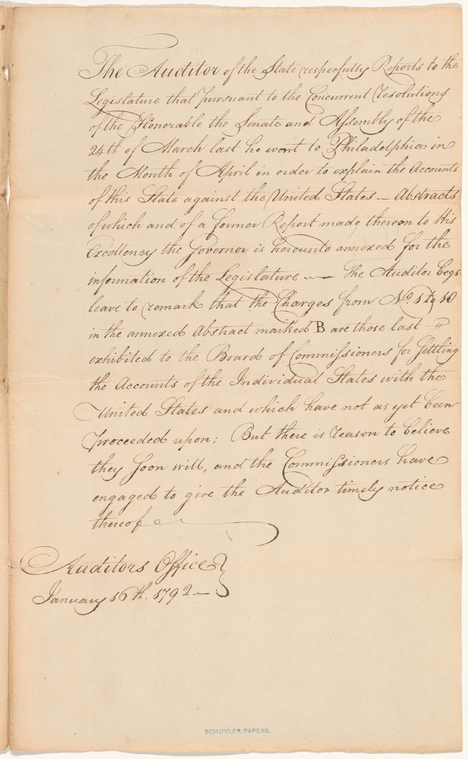 The Auditor of the State respecfully Reports to the
Legislature that pursuant to the Concurrent Resolutions
of the Honorable the Senate and Assembly of the
24th of March last he went to Philadelphia in
the Month of April in order to explain the Accounts
of this State against the United States — Abstracts
of which and of a former Report made thereon to His
Excellency the Governor is hereunto annexed for the
information of the Legislature — The Auditor begs
leave to remark that the Charges from No. 47 to 50
in the annexed Abstract marked B are those last
exhibited to the Board of Commissioners for settling
the Accounts of the Individual States with the
United States and which have not as yet been
proceeded upon; But there is reason to believe
they soon will, and the Commissioners have
engaged to give the Auditor timely notice
thereof
Auditors Office
January 16th. 1792 —
SCHUYLER PAPERS.